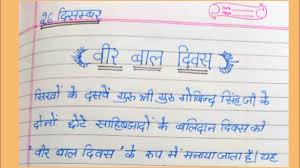 26 दिसम्बर
वीर बाल दिवस
सिखों के दसवें गुरु श्री गुरु गोबिन्द सिंह जी के
दोनों छोटे साहिबजादों के बलिदान दिवस को
'वीर बाल दिवस' के रूप में मनाया जाता है। यह